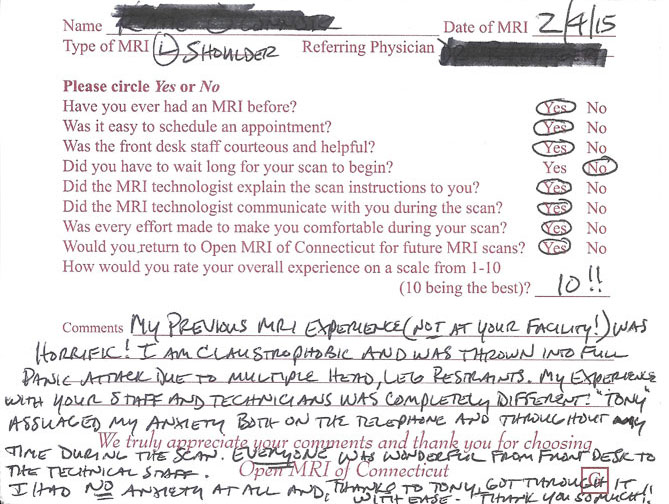 Name Date of MRI 2/4/15
Type of MRI (L) SHOULDER Referring Physician
Please circle Yes or No
Have you ever had an MRI before? Yes No
Was it easy to schedule an appointment? Yes No
Was the front desk staff courteous and helpful? Yes No
Did you have to wait long for your scan to begin? Yes No
Did the MRI technologist explain the scan instructions to you? Yes No
Did the MRI technologist communicate with you during the scan? Yes No
Was every effort made to make you comfortable during your scan? Yes No
Would you return to Open MRI of Connecticut for future MRI scans? Yes No
How would you rate your overall experience on a scale from 1-10
(10 being the best)? 10!!
Comments MY PREVIOUS MRI EXPERIENCE (NOT AT YOUR FACILITY!) WAS
HORRIFIC! I AM CLAUSTROPHOBIC AND WAS THROWN INTO FULL
PANIC ATTACK DUE TO MULTIPLE HEAD, LEG RESTRAINTS. MY EXPERIENCE
WITH YOUR STAFF AND TECHNICIANS WAS COMPLETELY DIFFERENT. "TONY"
ASSUAGED MY ANXIETY BOTH ON THE TELEPHONE AND THROUGHOUT MY
We truly appreciate your comments and thank you for choosing
TIME DURING THE SCAN. EVERYONE WAS WONDERFUL FROM FRONT DESK TO
Open MRI of Connecticut
THE TECHNICAL STAFF.
I HAD NO ANXIETY AT ALL AND, THANKS TO TONY, GOT THROUGH IT
WITH EASE. THANK YOU SO MUCH!!